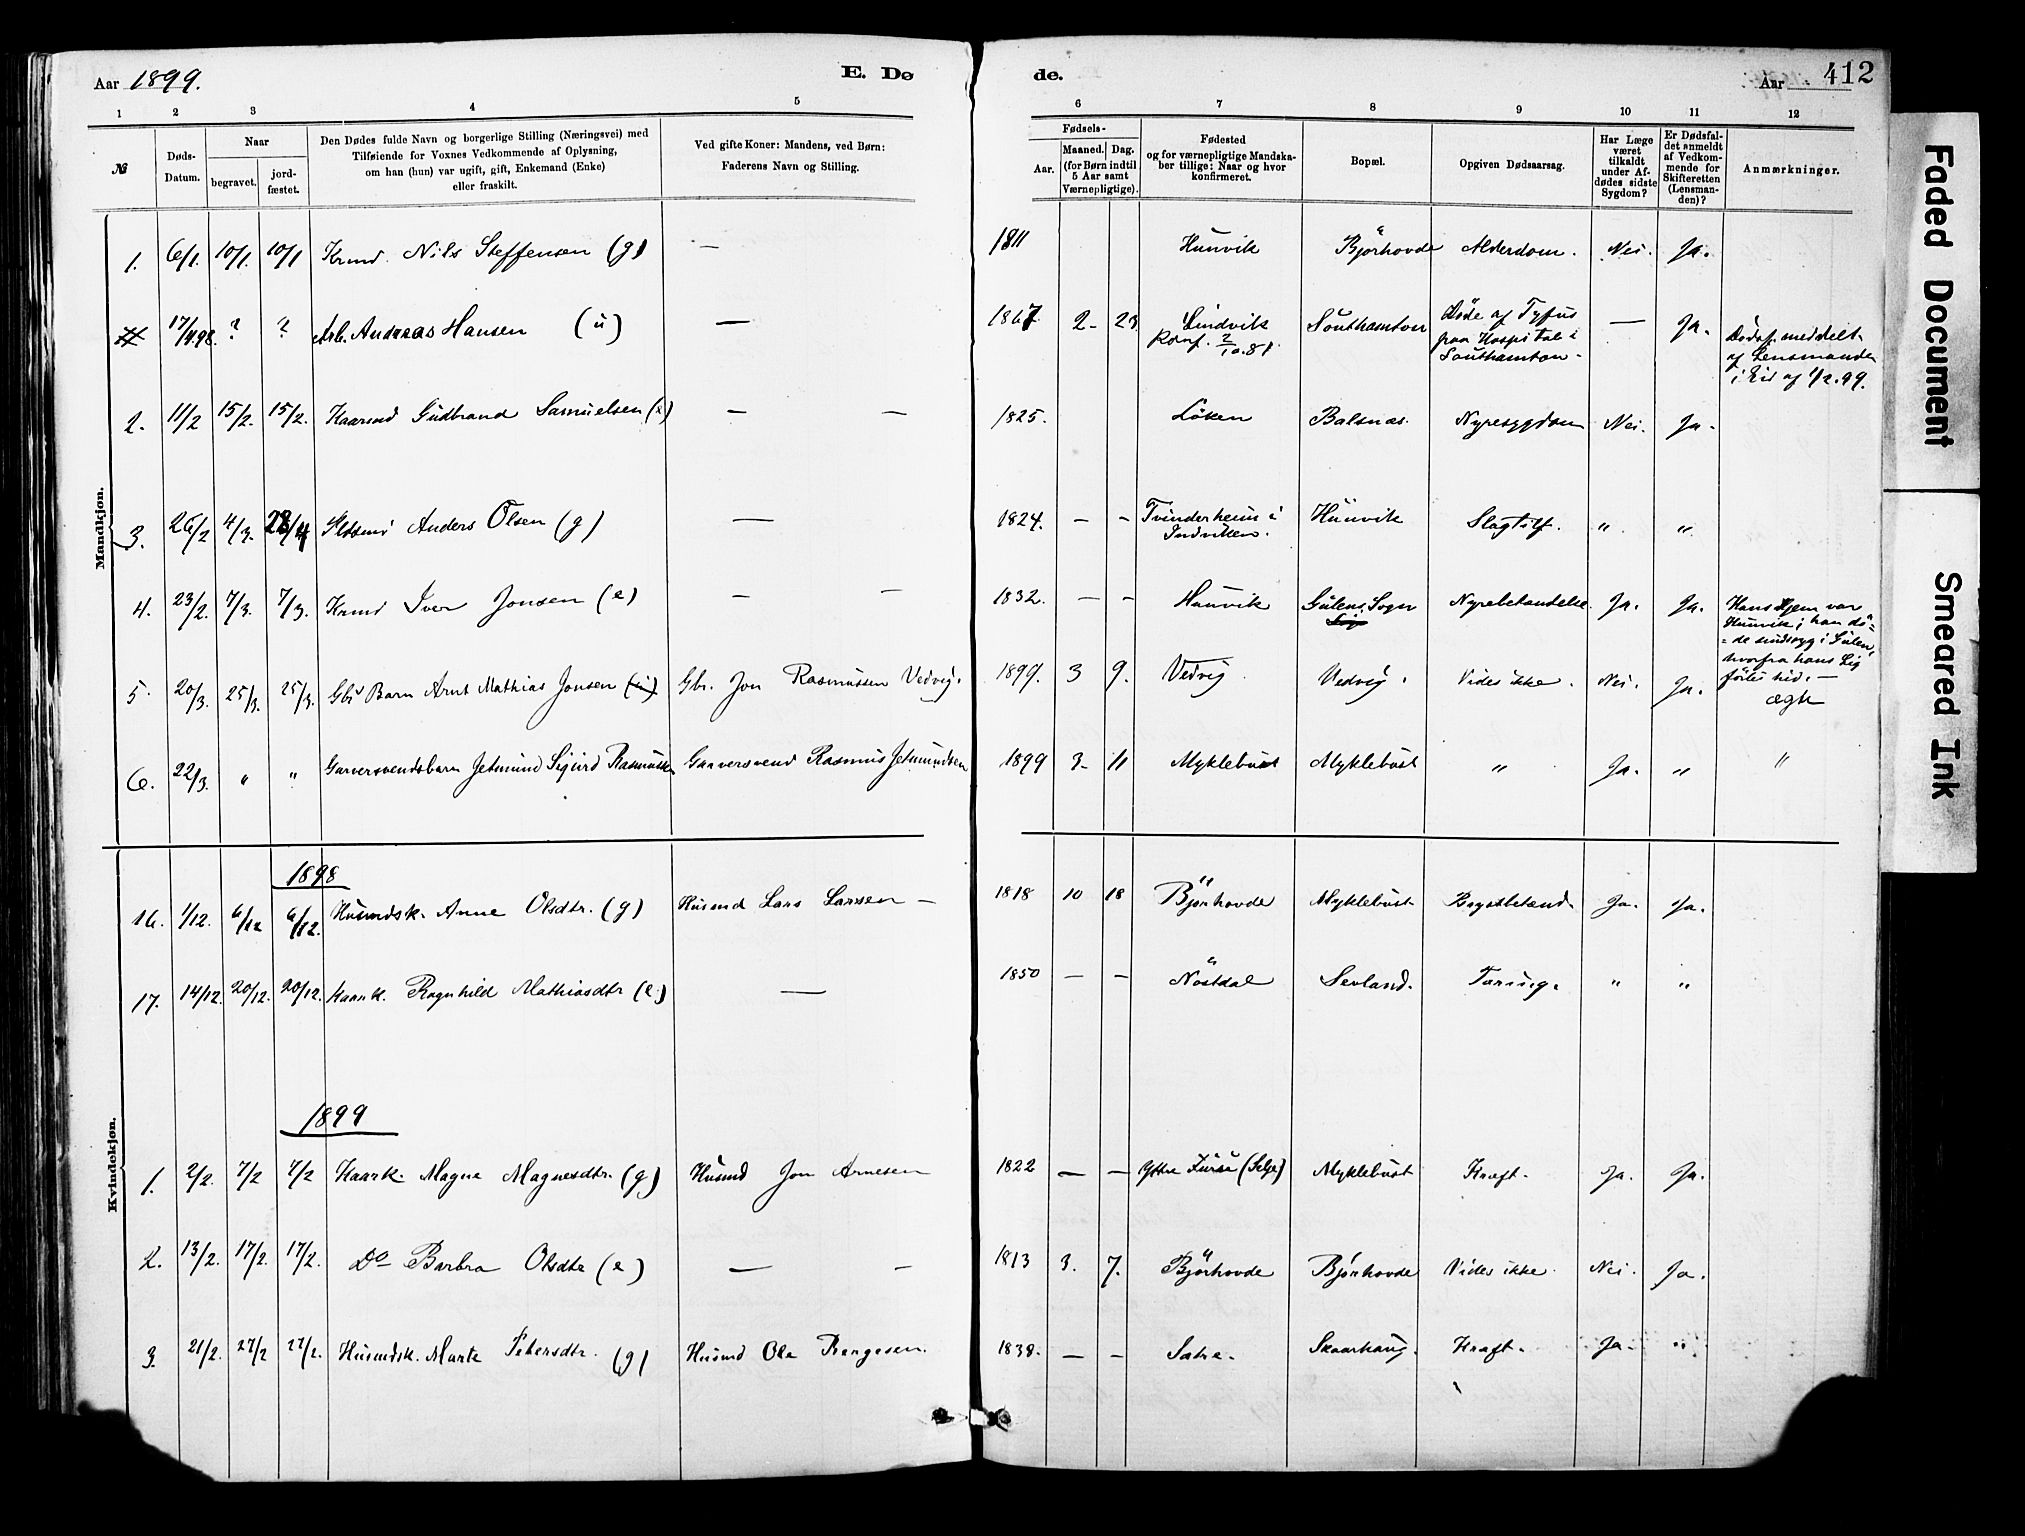 Aar 1899.
E. Dø
de.
Aar
412
1 2 3 4 5
6 7 8 9 10 11 12
№
Døds-
Datum.
Naar
begravet.
jord-
fæstet.
Den Dødes fulde Navn og borgerlige Stilling (Næringsvei) med
Tilføiende for Voxnes Vedkommende af Oplysning,
om han (hun) var ugift, gift, Enkemand (Enke)
eller fraskilt.
Ved gifte Koner: Mandens, ved Børn:
Faderens Navn og Stilling.
Fødsels-
Aar.
Maaned. Dag.
(for Børn indtil
5 Aar samt
Værnepligtige).
Fødested
og for værnepligtige Mandska-
ber tillige: Naar og hvor
konfirmeret.
Bopæl.
Opgiven Dødsaarsag.
Har Læge
været
tilkaldt
under Af-
dødes sidste
Sygdom?
Er Dødsfal-
det anmeldt
af Vedkom-
mende for
Skifteretten
(Lensman-
den)?
Anmærkninger.
Mandkjøn.
1. 6/1. 10/1. 10/1 Krmd. Nils Steffensen (g) — 1811 Hunvik Bjørhovde Alderdom. Nei. Ja.
17/ 98. ? ? Arb. Andreas Hansen (u) — 1867 2- 23 Lindvik Southamton Døde af Tyfus — Ja.
Konf. 2/10.81. paa Hospital i
Southamton.
Dødsf. meddelt
af Lensmanden
i Eid af 1/2.99.
2. 11/2 15/2. 15/2. Kaarmd Gudbrand Samuelsen — — 1825. Løken Balsnæs. Nyresygdom Nei. Ja.
3. 26/2 4/3. 28/4 Anders Olsen (g) — 1824. — — Tvinderheim i Hunvik Slagtilf. " "
Indviken.
4. 23/2. 7/3. 7/3. Krmd Iver Jonsen (e) — — 1832. — — Hunvik Gulen, Sogn Nyrebetændelse. Ja. Ja.
Hans Hjem var
Hunvik; han dø-
-de sindssyg i Gulen,
hvorfra hans Lig
førtes hid. —
5. 20/3. 25/3. 25/3. Gbr Barn Arnt Mathias Jonsen Gbr. Jon Rasmussen Vedvig. 1899. 3 9. Vedvig Vedvig. Vides ikke. Nei. Ja. ægte
6. 22/3. " " Garversvendsbarn Jetmund Sigurd Rasmussen Garversvend Rasmus Jetmundsen 1899 3- 11 Myklebust Myklebust " Ja. " "
1898
16. 1/12. 6/12 6/12. Husmdsk. Anne Olsdtr. (g) Husmd Lars Larsen — 1818 10 18 Bjørhovde Myklebust Brystbetænd. Ja. Ja.
17. 14/12. 20/12. 20/12. Kaark. Ragnhild Mathiasdtr (e) — 1850 — — Nøstdal Sevland. Tæring. " "
Kvindekjøn.
1899
1. 2/2. 7/2 7/2 Kaark. Magna Magnesdtr. (g) Husmd Jon Arnesen 1822 — — Ytre (Selje) Myklebust Kræft. Ja. Ja.
2. 13/2. 17/2. 17/2. Do Barbra Olsdtr (e) — — 1813 3. 7. Bjørhovde Bjørhovde Vides ikke. Nei. Ja.
3. 21/2. 27/2 27/2. Husmdsk. Marte Petersdtr. (g) Husmd Ole 1838. — — Sætre. Skaarhaug. Kræft. Ja. "
Faded Document
Smeared Ink